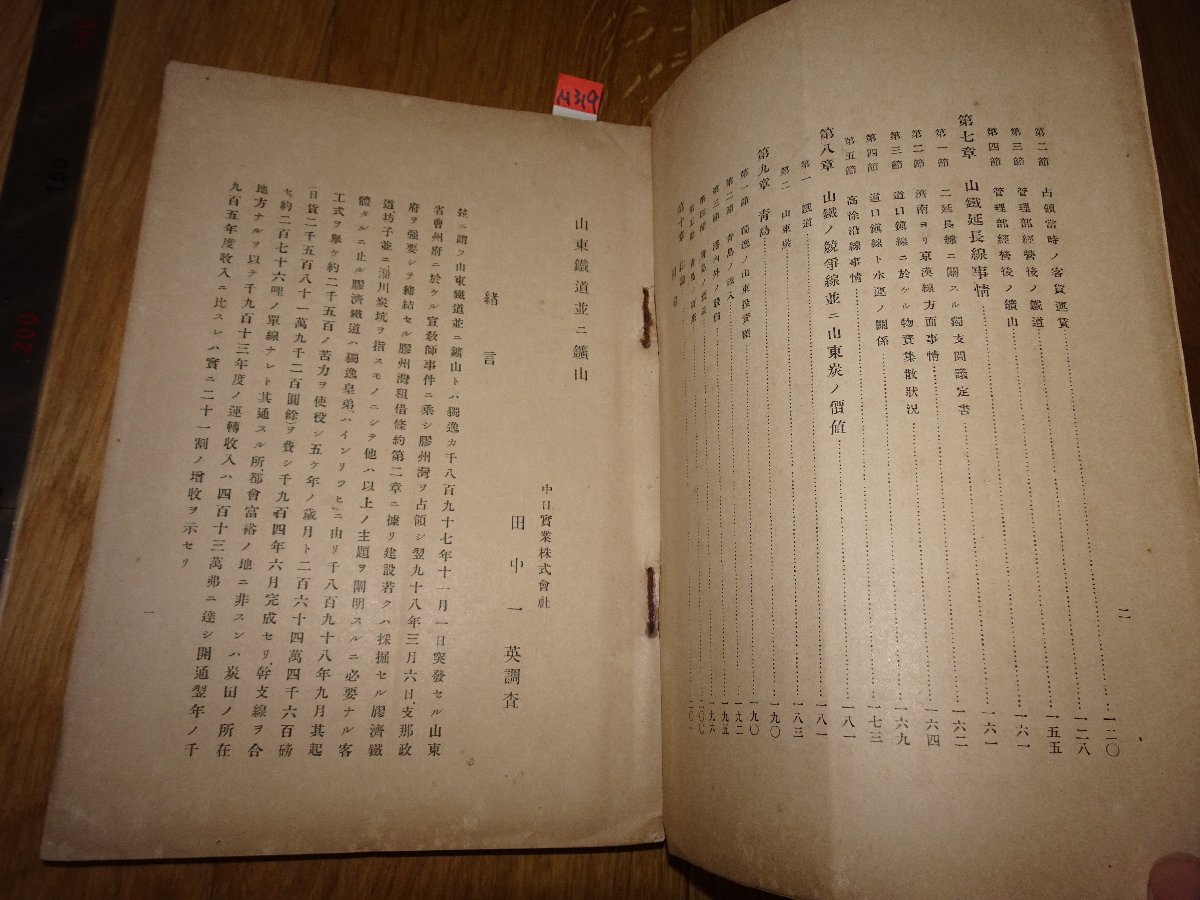 二
第二節 占領當時ノ客貨運賃 一二〇
第三節 管理部經營後ノ鐵道 一二八
第四節 管理部經營後ノ鑛山 一五五
第七章 山鐵延長線事情 一六一
第一節 二延長線ニ關スル獨支間議定書 一六一
第二節 濟南ヨリ京漢線方面事情 一六二
第三節 道口鎭線ニ於ケル物資集散狀況 一六四
第四節 道口鎭線ト水運ノ關係 一六九
第五節 高徐沿線事情 一七三
第八章 山鐵ノ競爭線並ニ山東炭ノ價値 一八一
第一 鐵道 一八一
第二 山東炭 一八三
第九章 青島 一九〇
第一節 獨逸ノ山東投資額 一九〇
第二節 青島ノ
第三節 港內外ノ設備
第四節 青島ノ貿易
第五節
第十章
山東鐵道並ニ鑛山
中日實業株式會社
田中一英調査
緒言
茲ニ謂フ山東鐵道並ニ鑛山トハ獨逸カ千八百九十七年十一月一日突發セル山東
省曹州府ニ於ケル宣敎師事件ニ乘シ膠州灣ヲ占領シ翌九十八年三月六日、支那政
府ヲ强要シテ締結セル膠州灣租借條約第二章ニ據リ建設若クハ採掘セル膠濟鐵
道坊子並ニ淄川炭坑ヲ指スモノニシテ他ハ以上ノ主題ヲ闡明スルニ必要ナル客
體タルニ止ル膠濟鐵道ハ獨逸皇弟、ハインリツヒニ由リ千八百九十八年九月其起
工式ヲ擧ケ約二千五百ノ苦力ヲ使役シ五ケ年ノ歲月ト二百六十四萬四千六百磅
(日貨二千五百八十一萬九千二百圓餘)ヲ費シ千九百四年六月完成セリ、幹支線ヲ合
セ約二百七十六哩ノ單線ナレト其通スル所、都會富裕ノ地ニ非スンハ炭田ノ所在
地方ナルヲ以テ千九百十三年度ノ運轉收入ハ四百十三萬弗ニ達シ開通翌年ノ千
九百五年度收入ニ比スレハ實ニ二十一割ノ增收ヲ示セリ
一
M319
150
200